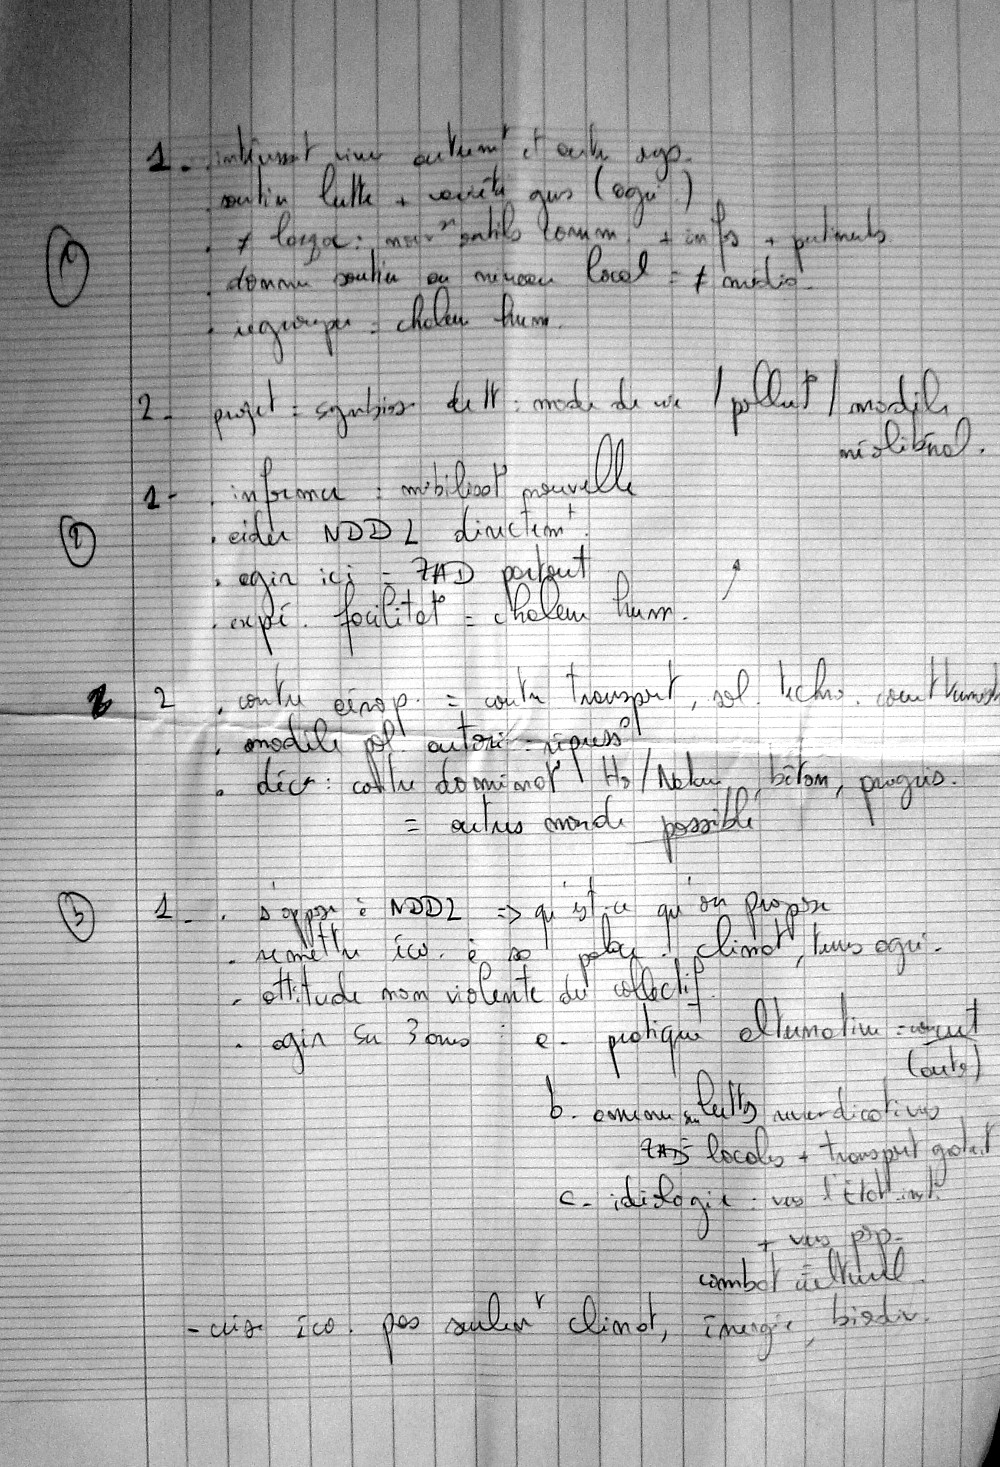 1. vivre autremt et
soutien lutte + société
≠ locaux : outils comm. + infos +
donner soutien au niveau local = ≠ média.
. regrouper = chaleur hum.
①
2- projet : symbiose de tt : mode de vie / pollut° / modèle
néolibéral.
②
1- . informer : mobilisat° nouvelle
. aider NDDL directemt.
. agir ici = ZAD partout
. expé. facilitat° = chaleur hum.
2 . contre aérop. = contre transport, sol. techno.
. modèle pol. autori - répress°
. contre dominat° H/Nature, béton, progrès.
= autres monde possible
③
1. . s'oppose à NDDL => qu'est-ce qu'on propose
. remettre éco. à sa place : climat, terres agri.
. attitude non violente du collectif
. agir sur 3 axes : a. pratique alternative =
b. luttes revendicatives
ZADS locales + transport gratuit
c. idéologie : vers l'État
+ vers pop-
combat culturel.
- crise éco. pas seulemt climat, énergie, biodiv.